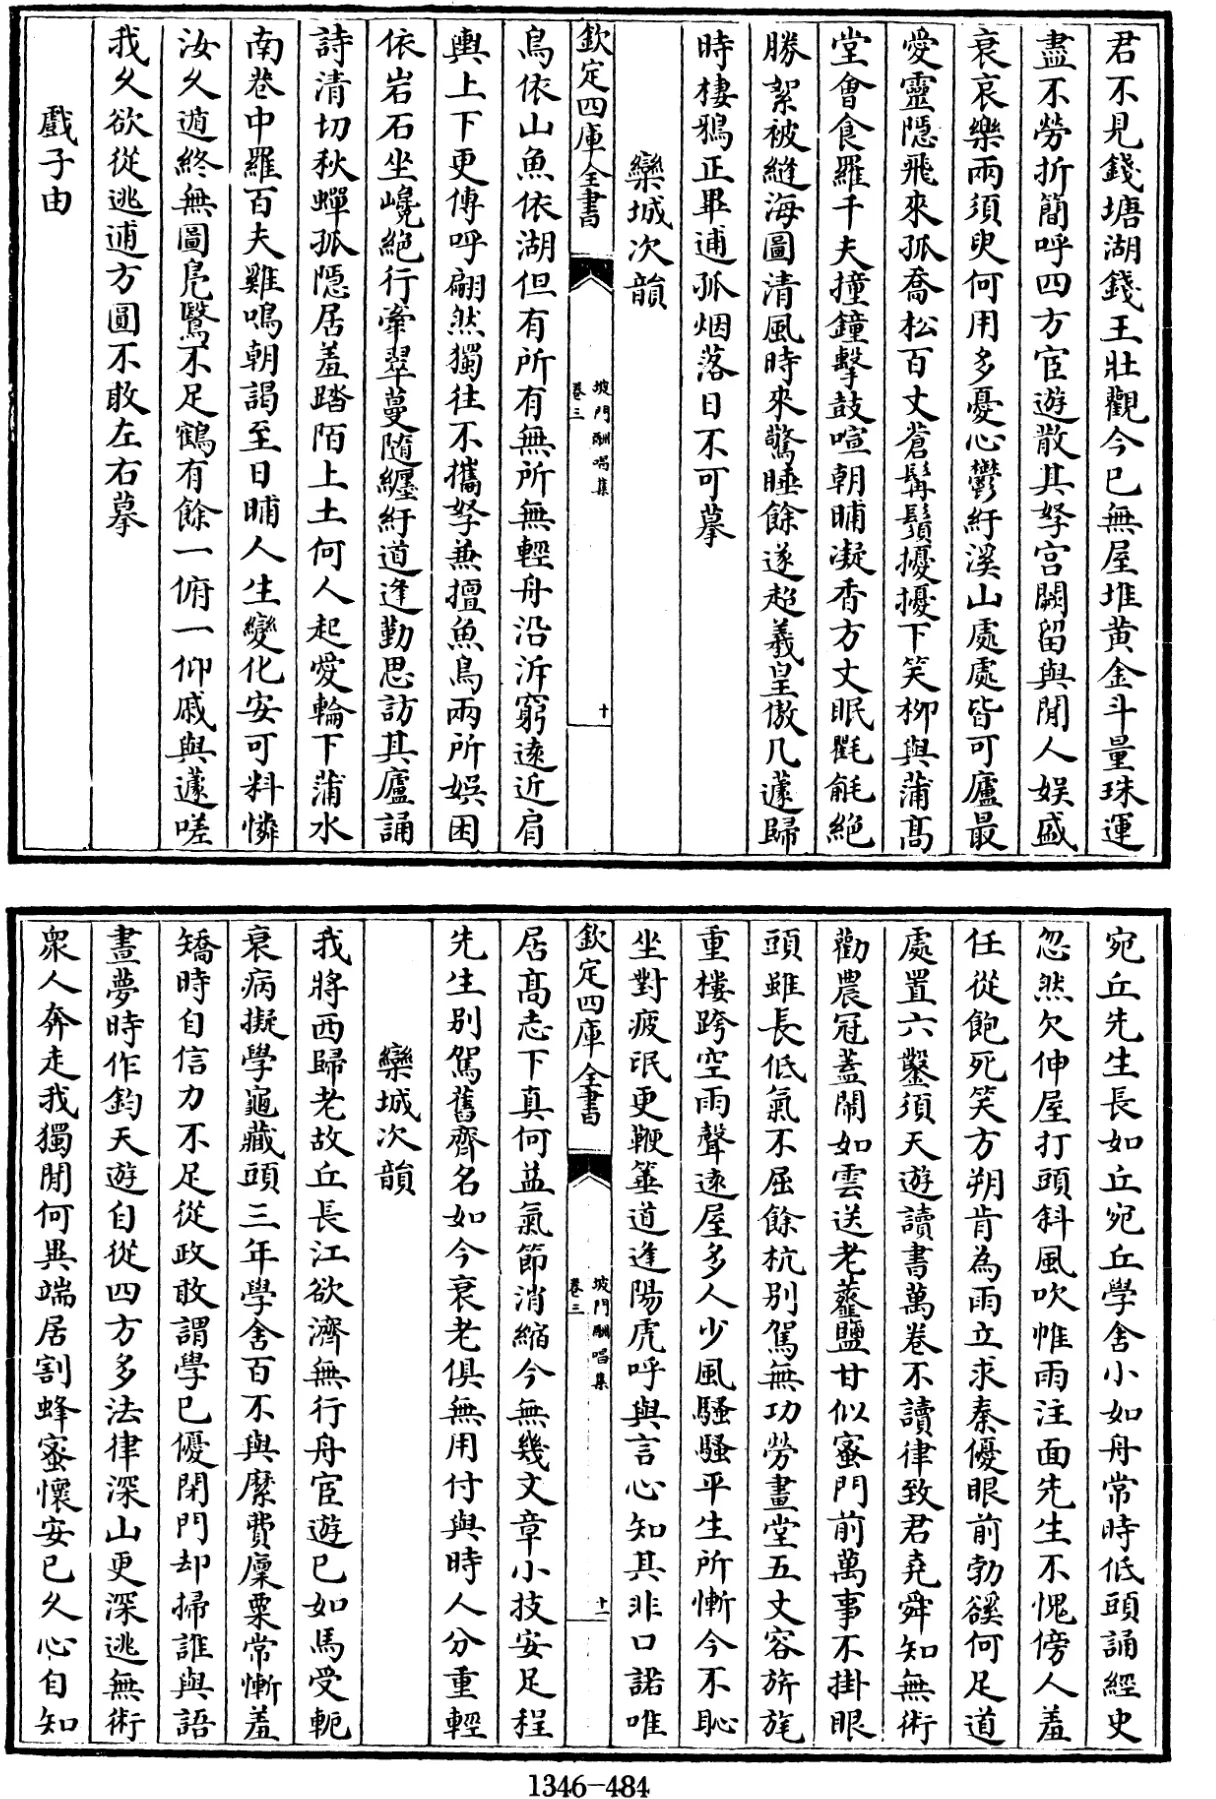 君不見錢塘湖錢王壯觀今已無屋堆黄金斗量珠運
盡不勞折簡呼四方宦遊散其孥宫闕留與閒人娯盛
衰哀樂兩須臾何用多憂心鬱紆溪山處處皆可廬最
愛靈隠飛來孤喬松百丈蒼髯鬚擾擾下笑柳與蒲髙
堂㑹食羅千夫撞鐘擊鼓喧朝晡凝香方丈眠氍毹絶
勝絮被縫海圖清風時來驚睡餘遂超羲皇傲几蘧歸
時棲鴉正畢逋孤烟落日不可摹
欒城次韻
欽定四庫全書
坡門酬唱集
卷三
十
鳥依山魚依湖但有所有無所無輕舟沿泝窮逺近肩
輿上下更傳呼翩然獨往不攜孥兼擅魚鳥兩所娯困
依岩石坐巉絶行牽翠蔓隨纒紆道逢勤思訪其廬誦
詩清切秋蟬孤隠居羞踏陌上土何人起愛輪下蒲水
南巷中羅百夫雞鳴朝謁至日晡人生變化安可料憐
汝久遁終無圖鳬鷖不足鶴有餘一俯一仰戚與蘧嗟
我久欲從逃逋方圓不敢左右摹
戲子由
宛丘先生長如丘宛丘學舍小如舟常時低頭誦經史
忽然欠伸屋打頭斜風吹帷雨注面先生不愧傍人羞
任從飽死笑方朔肯為雨立求秦優眼前勃谿何足道
處置六鑿須天遊讀書萬卷不讀律致君堯舜知無術
勸農冠蓋鬧如雲送老虀鹽甘似蜜門前萬事不掛眼
頭雖長低氣不屈餘杭别駕無功勞畫堂五丈容旂旄
重樓跨空雨聲逺屋多人少風騷騷平生所慚今不恥
坐對疲氓更鞭箠道逢陽虎呼與言心知其非口諾唯
欽定四庫全書
坡門酬唱集
卷三
十一
居髙志下真何益氣節消縮今無幾文章小技安足程
先生别駕舊齊名如今衰老俱無用付與時人分重輕
欒城次韻
我將西歸老故丘長江欲濟無行舟宦遊已如馬受軛
衰病擬學龜藏頭三年學舍百不與縻費廩粟常慚羞
矯時自信力不足從政敢謂學已優閉門却掃誰與語
晝夢時作鈞天遊自從四方多法律深山更深逃無術
衆人奔走我獨閒何異端居割蜂蜜懷安已久心自知
1346-484